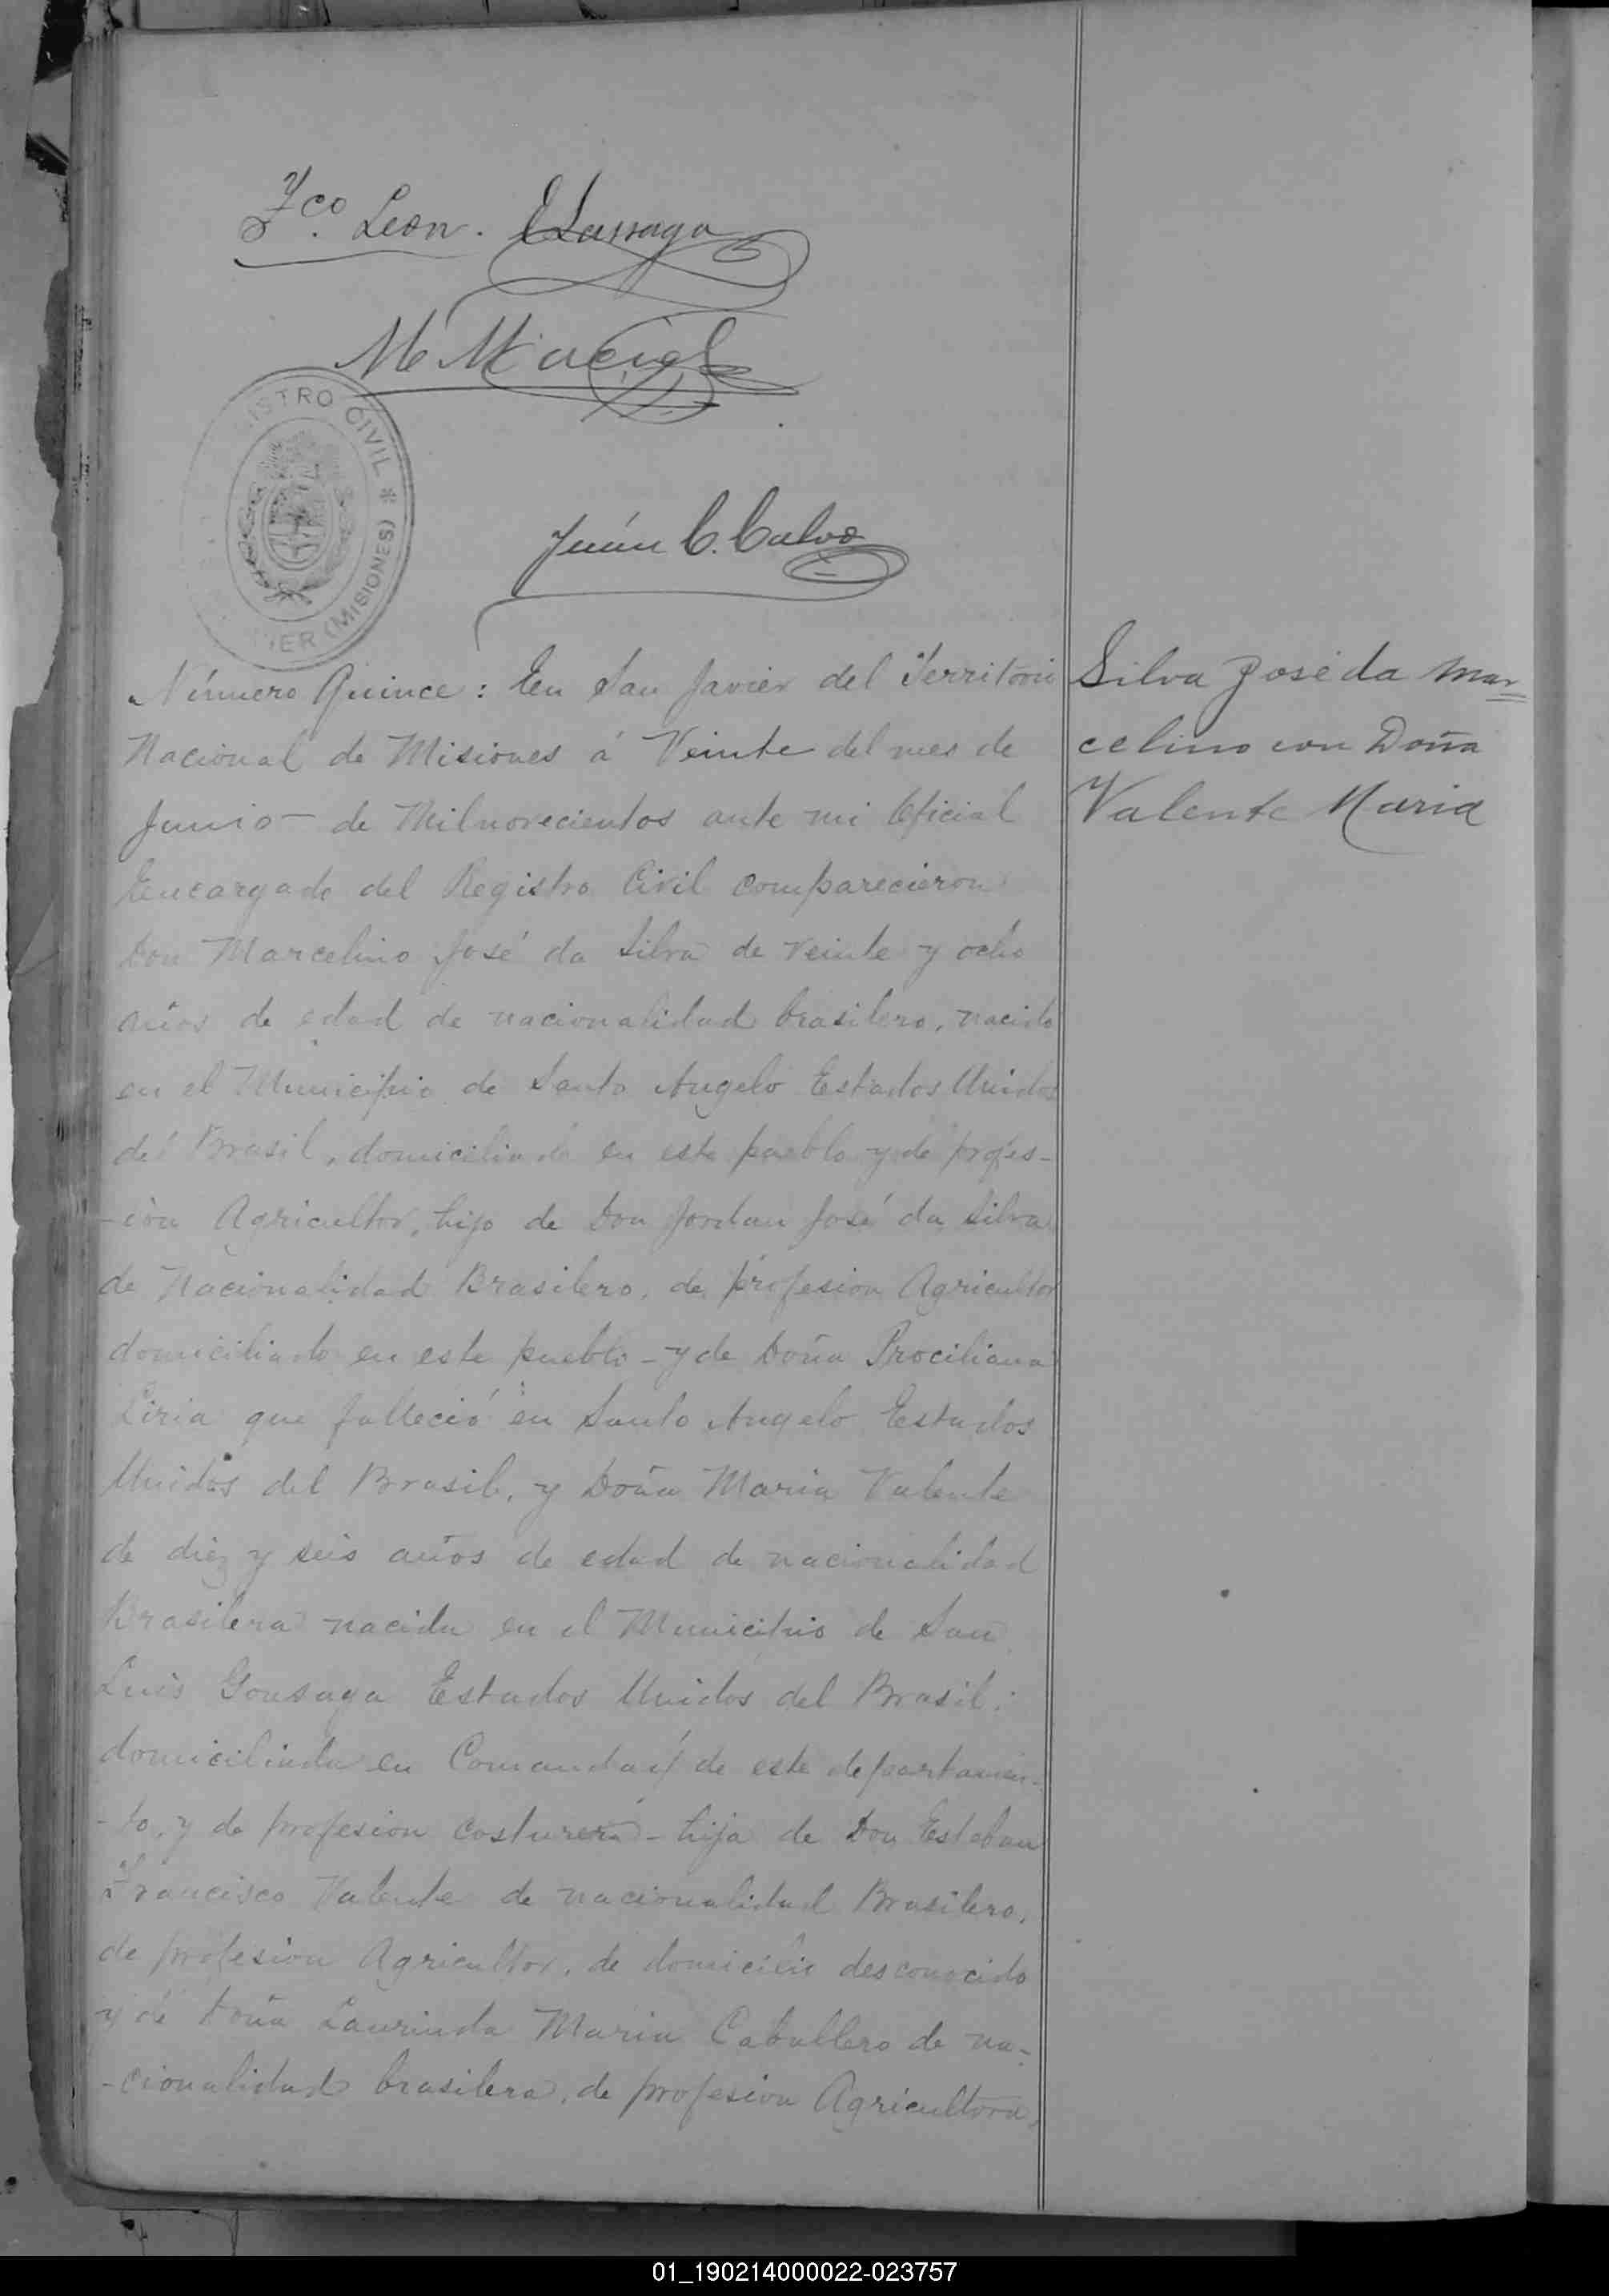 Fco. Leon. Elassaga
M Maciel
ISTRO CIVIL * IER (MISIONES)
Juán C. Calvo
Número Quince: En San Javier del Territorio
Nacional de Misiones á Veinte del mes de
Junio - de Milnovecientos ante mi Oficial
Encargado del Registro Civil comparecieron
Don Marcelino José da Silva de Veinte y ocho
años de edad de nacionalidad brasilero, nacido
en el Municipio de Santo Angelo Estados Unidos
del Brasil, domiciliado en este pueblo y de profes-
-ion Agricultor, hijo de Don Jordan José da Silva
de Nacionalidad Brasilero, de profesion Agricultor
domiciliado en este pueblo - y de Doña Prociliana
Liria que falleció en Santo Angelo Estados
Unidos del Brasil, y Doña Maria Valente
de diez y seis años de edad de nacionalidad
Brasilera nacida en el Municipio de San
Luis Gonsaga Estados Unidos del Brasil:
domiciliada en Comandaý de este departamen-
-to, y de profesion costurera - hija de Don Esteban
Francisco Valente de nacionalidad Brasilero,
de profesion Agricultor, de domicilio desconocido
y de Doña Laurinda Maria Caballero de na-
-cionalidad brasilera, de profesion Agricultora,
Silva José da Mar
celino con Doña
Valente Maria
01_190214000022-023757